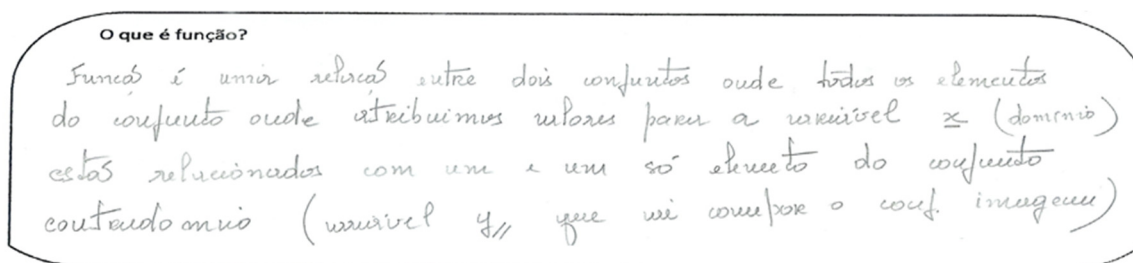 O que é função?
Função é uma relação entre dois conjuntos onde todos os elementos
do conjunto onde atribuimos valores para a variável x (domínio)
estão relacionados com um e um só elemento do conjunto
contradomnio (variável y, que vai compor o conj. imagem)